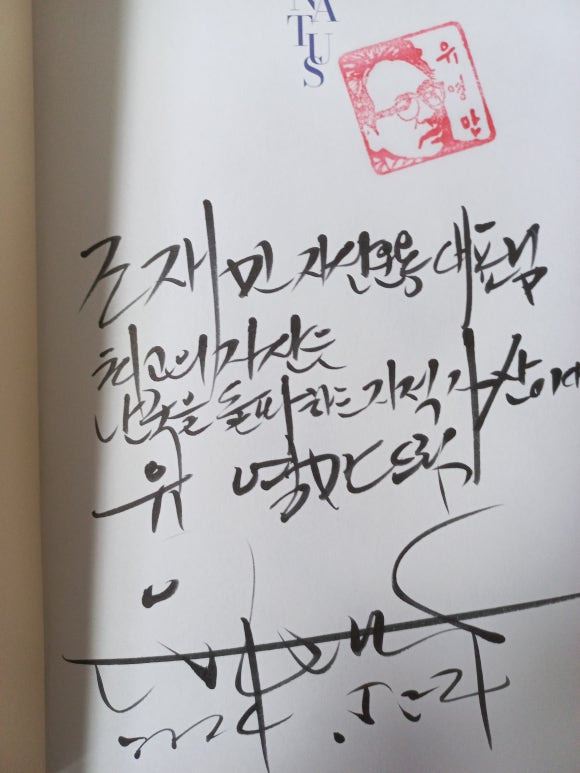 NATUS
유영만
조재민 자산운용 대표님
최고의 자산은
난국을 돌파하는 지적 자산이다
유영만 드림